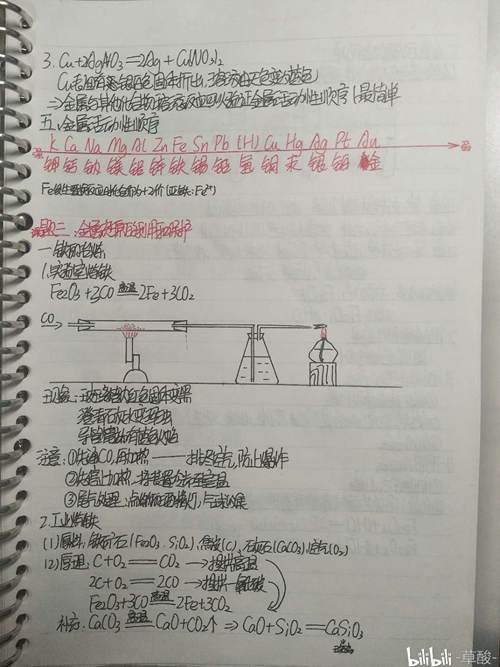 3. Cu+2AgNO₃=2Ag+Cu(NO₃)₂
Cu表面有亮银白色固体析出,溶液由无色变为蓝色
⇒金属与其他化合物溶液反应可以验证金属活动性顺序(最简单
五.金属活动性顺序
K Ca Na Mg Al Zn Fe Sn Pb (H) Cu Hg Ag Pt Au
钾 钙 钠 镁 铝 锌 铁 锡 铅 氢 铜 汞 银 铂 金
:金属资源的利用和保护
一.铁的冶炼
1.实验室炼铁
Fe₂O₃+3CO 高温 2Fe+3CO₂
CO
现象:红色固体变黑
澄清石灰水变浑浊
注意:①先通CO,再加热——排尽空气,防止爆炸
②先停止加热,
③尾气处理:点燃
2.工业炼铁
(1)原料:铁矿石(Fe₂O₃、SiO₂),焦炭(C),石灰石(CaCO₃),空气(O₂)
(2)原理:C+O₂=CO₂→提供高温
2C+O₂=2CO→提供
Fe₂O₃+3CO 高温 2Fe+3CO₂
补充:CaCO₃ 高温 CaO+CO₂↑⇒CaO+SiO₂=CaSiO₃
bilibili -草酸-